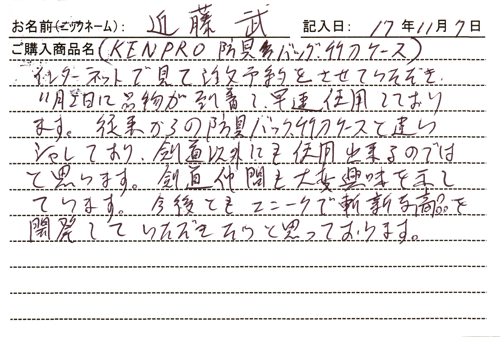 お名前(ニックネーム): 近藤 武 記入日: 17年11月7日
ご購入商品名(KENPRO 防具バッグ,竹刀ケース)
インターネットで見て注文予約をさせていただき
11月2日に品物が到着し早速使用しており
ます。従来からの防具バッグ竹刀ケースと違い
シャレており、剣道以外にも使用出来るのでは
と思います。剣道仲間も大変興味を示し
ています。今後ともユニークで斬新な商品を
開発していただきたいと思っております。